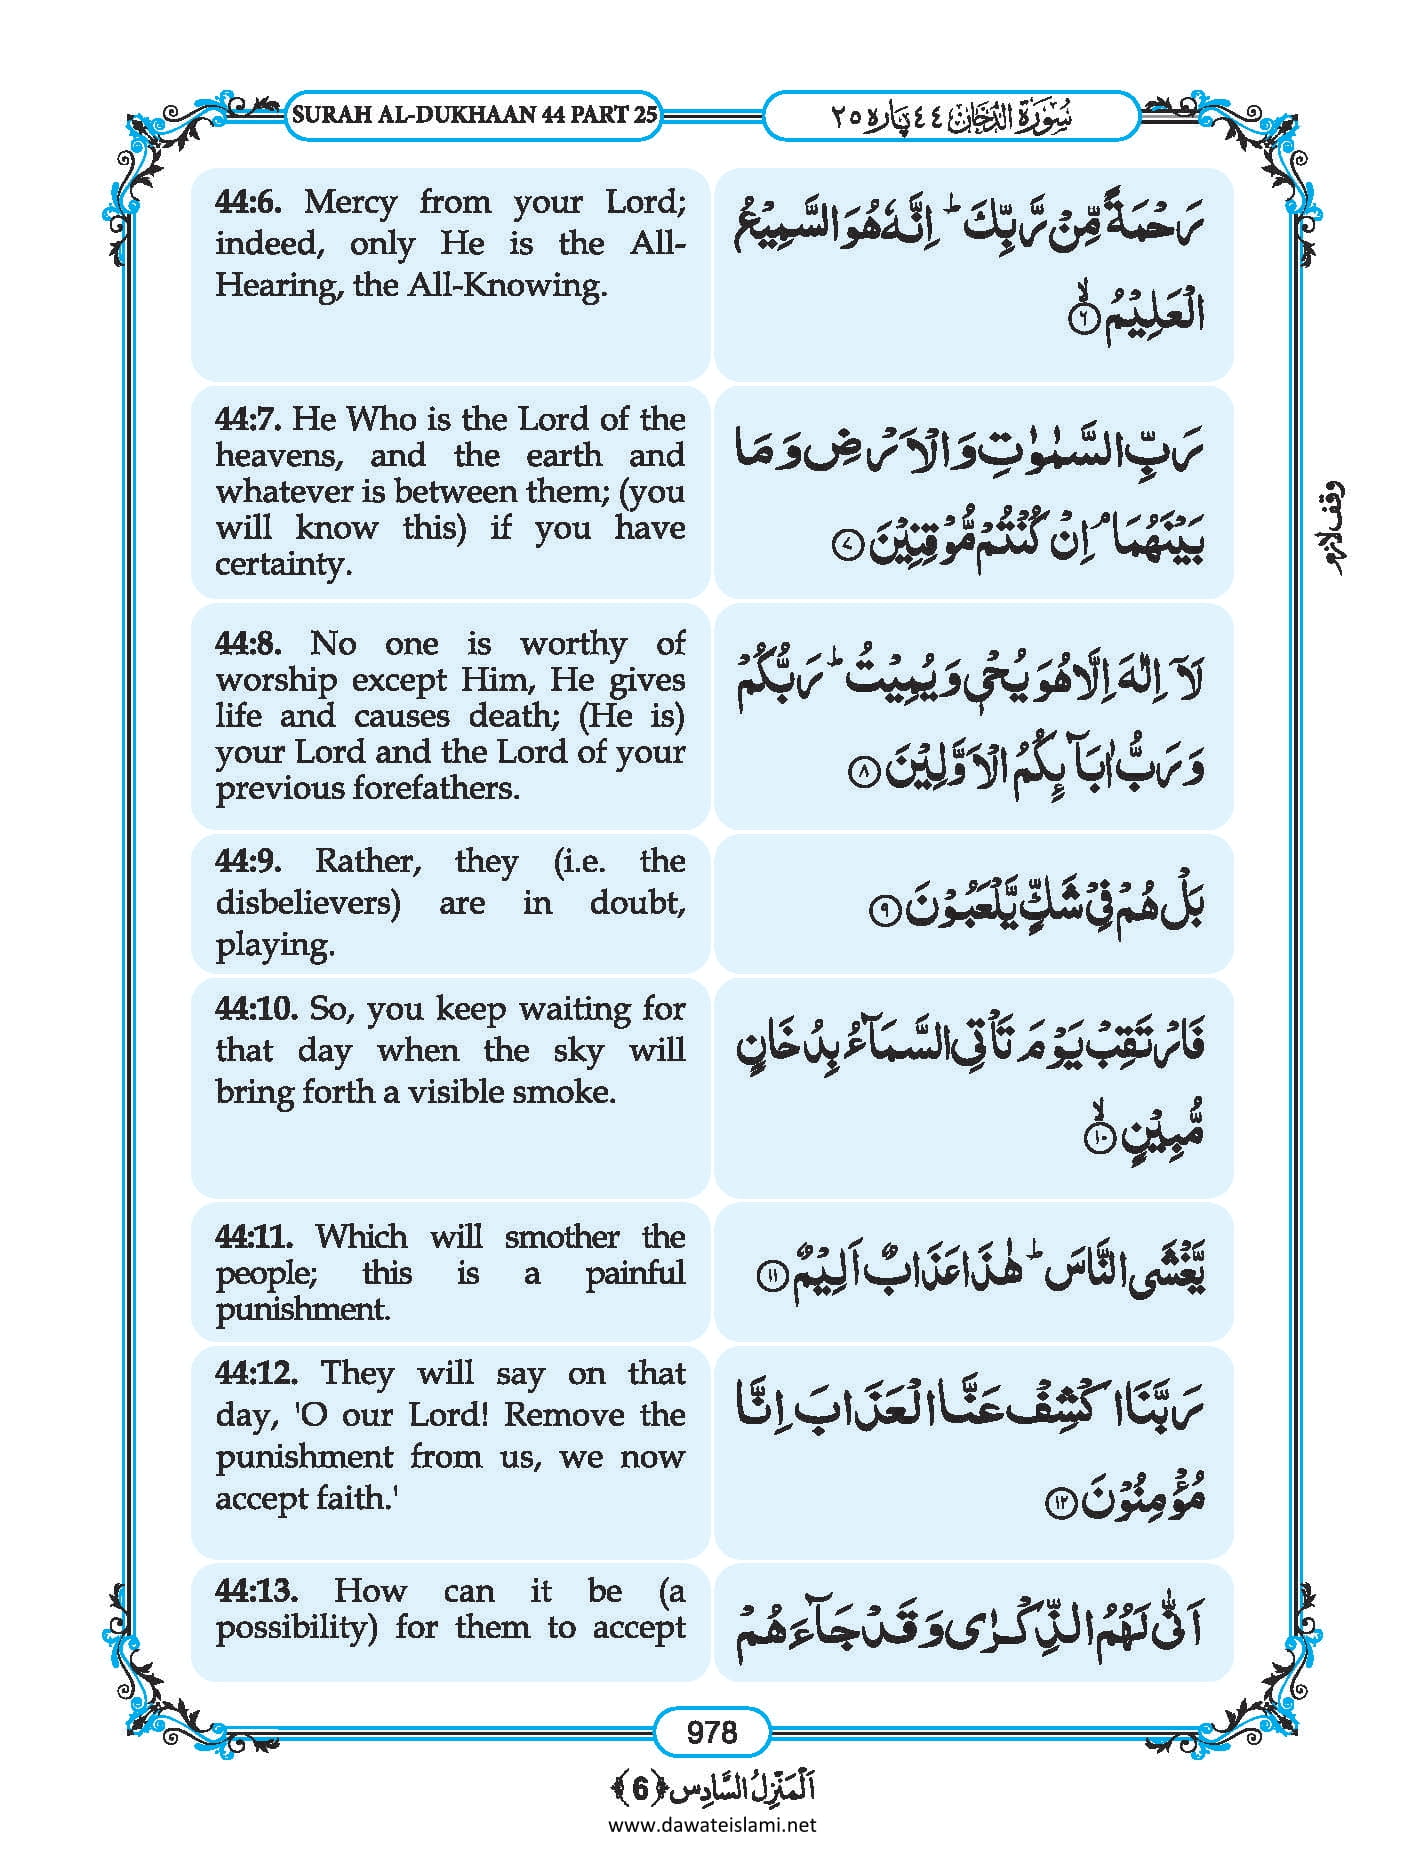 SURAH AL-DUKHAAN 44 PART 25
سُوْرَةُ الدُّخَان ٤٤ پارہ ٢٥
44:6. Mercy from your Lord;
indeed, only He is the All-
Hearing, the All-Knowing.
رَحْمَةً مِّنْ رَّبِّكَ ؕ اِنَّهٗ هُوَ السَّمِیْعُ
الْعَلِیْمُ ۙ﴿۶﴾
44:7. He Who is the Lord of the
heavens, and the earth and
whatever is between them; (you
will know this) if you have
certainty.
رَبِّ السَّمٰوٰتِ وَ الْاَرْضِ وَ مَا
بَیْنَهُمَا ۘ اِنْ كُنْتُمْ مُّوْقِنِیْنَ ﴿۷﴾
وقف لازم
44:8. No one is worthy of
worship except Him, He gives
life and causes death; (He is)
your Lord and the Lord of your
previous forefathers.
لَاۤ اِلٰهَ اِلَّا هُوَ یُحْیٖ وَ یُمِیْتُ ؕ رَبُّكُمْ
وَ رَبُّ اٰبَآىِٕكُمُ الْاَوَّلِیْنَ ﴿۸﴾
44:9. Rather, they (i.e. the
disbelievers) are in doubt,
playing.
بَلْ هُمْ فِیْ شَكٍّ یَّلْعَبُوْنَ ﴿۹﴾
44:10. So, you keep waiting for
that day when the sky will
bring forth a visible smoke.
فَارْتَقِبْ یَوْمَ تَاْتِی السَّمَآءُ بِدُخَانٍ
مُّبِیْنٍ ۙ﴿۱۰﴾
44:11. Which will smother the
people; this is a painful
punishment.
یَّغْشَى النَّاسَ ؕ هٰذَا عَذَابٌ اَلِیْمٌ ﴿۱۱﴾
44:12. They will say on that
day, 'O our Lord! Remove the
punishment from us, we now
accept faith.'
رَبَّنَا اكْشِفْ عَنَّا الْعَذَابَ اِنَّا
مُؤْمِنُوْنَ ﴿۱۲﴾
44:13. How can it be (a
possibility) for them to accept
اَنّٰى لَهُمُ الذِّكْرٰى وَ قَدْ جَآءَهُمْ
978
اَلْمَنْزِلُ السَّادِس ﴿6﴾
www.dawateislami.net